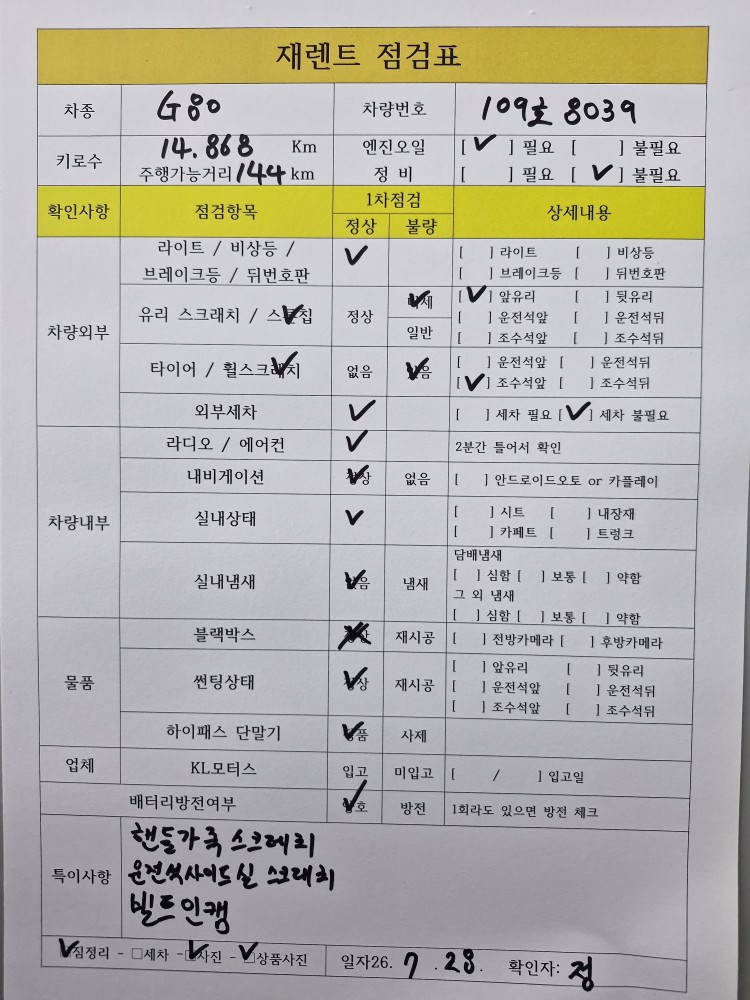 재렌트 점검표
차종 G80 차량번호 109호 8039
키로수 14.868 Km 엔진오일 [ ✓ ] 필요 [ ] 불필요
주행가능거리 144 km 정 비 [ ] 필요 [ ✓ ] 불필요
확인사항 점검항목 1차점검 상세내용
정상 불량
차량외부
라이트 / 비상등 / ✓ [ ] 라이트 [ ] 비상등
브레이크등 / 뒤번호판 [ ] 브레이크등 [ ] 뒤번호판
유리 스크래치 / 스톤칩 ✓ 정상 미세 ✓ [ ✓ ] 앞유리 [ ] 뒷유리
일반 [ ] 운전석앞 [ ] 운전석뒤
[ ] 조수석앞 [ ] 조수석뒤
타이어 / 휠스크래치 ✓ 없음 있음 ✓ [ ] 운전석앞 [ ] 운전석뒤
[ ✓ ] 조수석앞 [ ] 조수석뒤
외부세차 ✓ [ ] 세차 필요 [ ✓ ] 세차 불필요
차량내부
라디오 / 에어컨 ✓ 2분간 틀어서 확인
내비게이션 정상 ✓ 없음 [ ] 안드로이드오토 or 카플레이
실내상태 ✓ [ ] 시트 [ ] 내장재
[ ] 카페트 [ ] 트렁크
담배냄새
실내냄새 없음 ✓ 냄새 [ ] 심함 [ ] 보통 [ ] 약함
그 외 냄새
[ ] 심함 [ ] 보통 [ ] 약함
물품
블랙박스 정상 재시공 [ ] 전방카메라 [ ] 후방카메라
썬팅상태 정상 ✓ 재시공 [ ] 앞유리 [ ] 뒷유리
[ ] 운전석앞 [ ] 운전석뒤
[ ] 조수석앞 [ ] 조수석뒤
하이패스 단말기 정품 ✓ 사제
업체 KL모터스 입고 미입고 [ / ] 입고일
배터리방전여부 양호 ✓ 방전 1회라도 있으면 방전 체크
특이사항
핸들가죽 스크레치
운전석사이드실 스크래치
빌트인캠
✓ 짐정리 - □세차 - ✓ 사진 - ✓ 상품사진 일자26. 7 . 28 . 확인자: 정